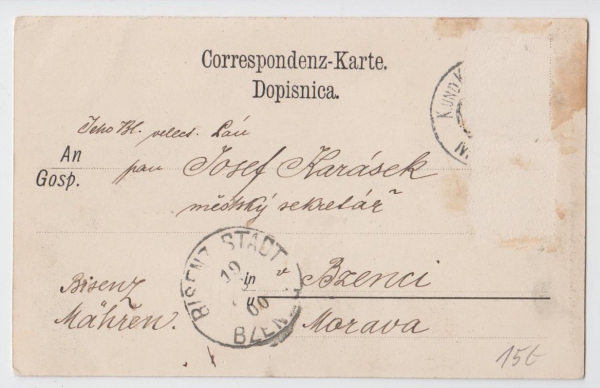 Correspondenz-Karte.
Dopisnica.
KUND
Jeho Bl. velect. Pán
An
Gosp.
pan Josef Karásek
městský sekretář
BISENZ STADT
19
60
BZEN
in v Bzenci
u
Bisenz
Mähren.
Morava
15t